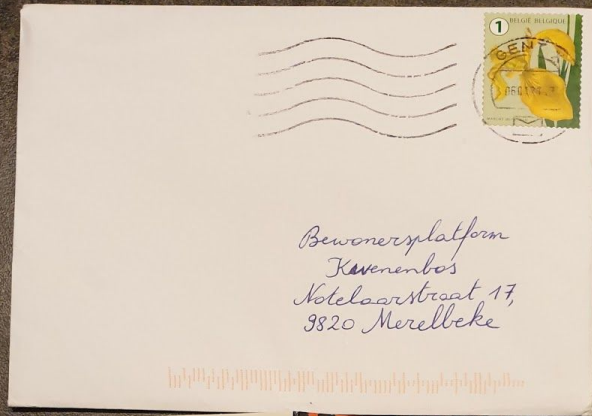 1
BELGIË BELGIQUE
GENT
Bewonersplatform
Kwenenbos
Notelaarstraat 17,
9820 Merelbeke